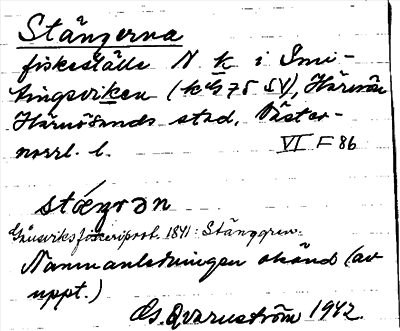 Stängerna
fiskeställe N k i Smi-
tingsviken (k 975 SV), Härnön
Härnösands stad. Väster-
norrl. l. VI F 86
stæŋrən
Gånsviksfiskeriprot. 1841: Stänggren.
Namnanledningen okänd (av
uppt.)
G. Qvarnström 1942